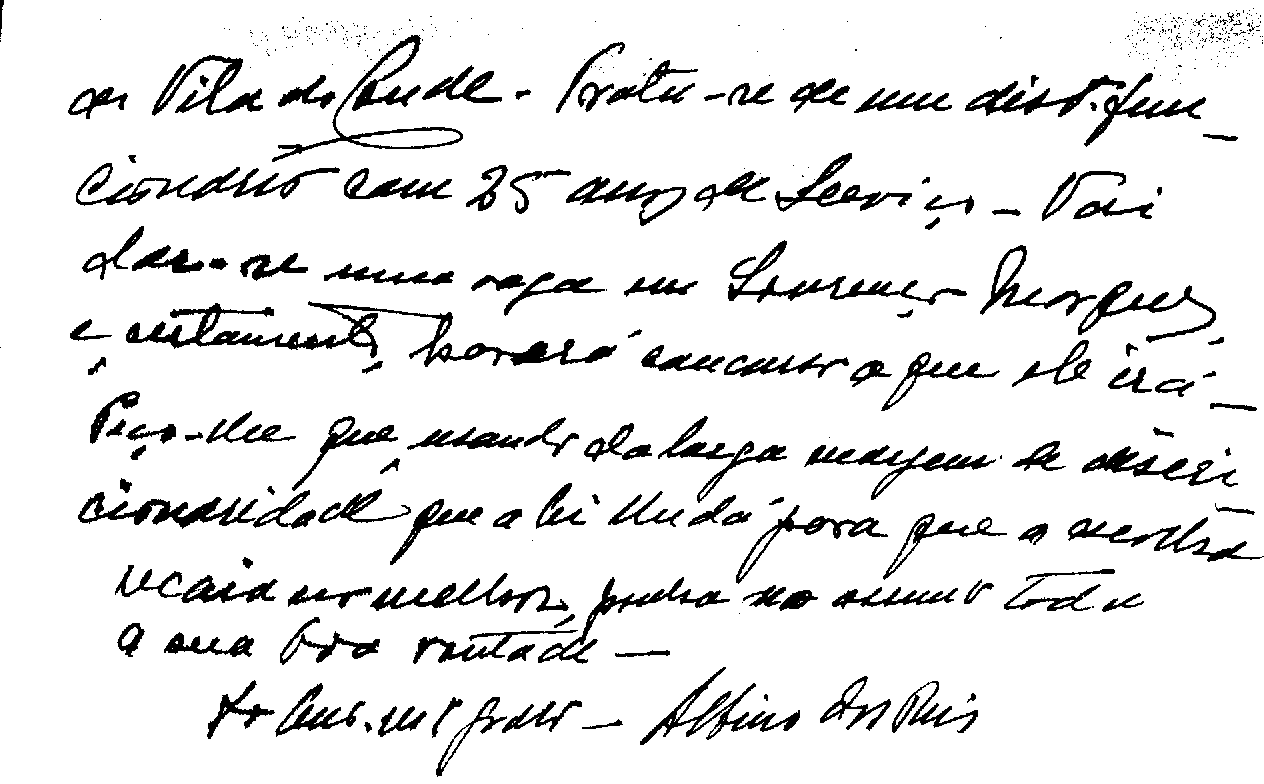 de Vila do Conde. Trata-se de um dist. fun-
cionário com 25 anos de Serviço - Vai
dar-se uma vaga em Lourenço Marques,
e, certamente, haverá concurso a que ele irá -
Peço-lhe que, usando da larga margem de discri-
cionaridade que a lei lhe dá para que a escolha
recaia no melhor, ponha no assunto toda
a sua boa vontade -
grato - Albino dos Reis